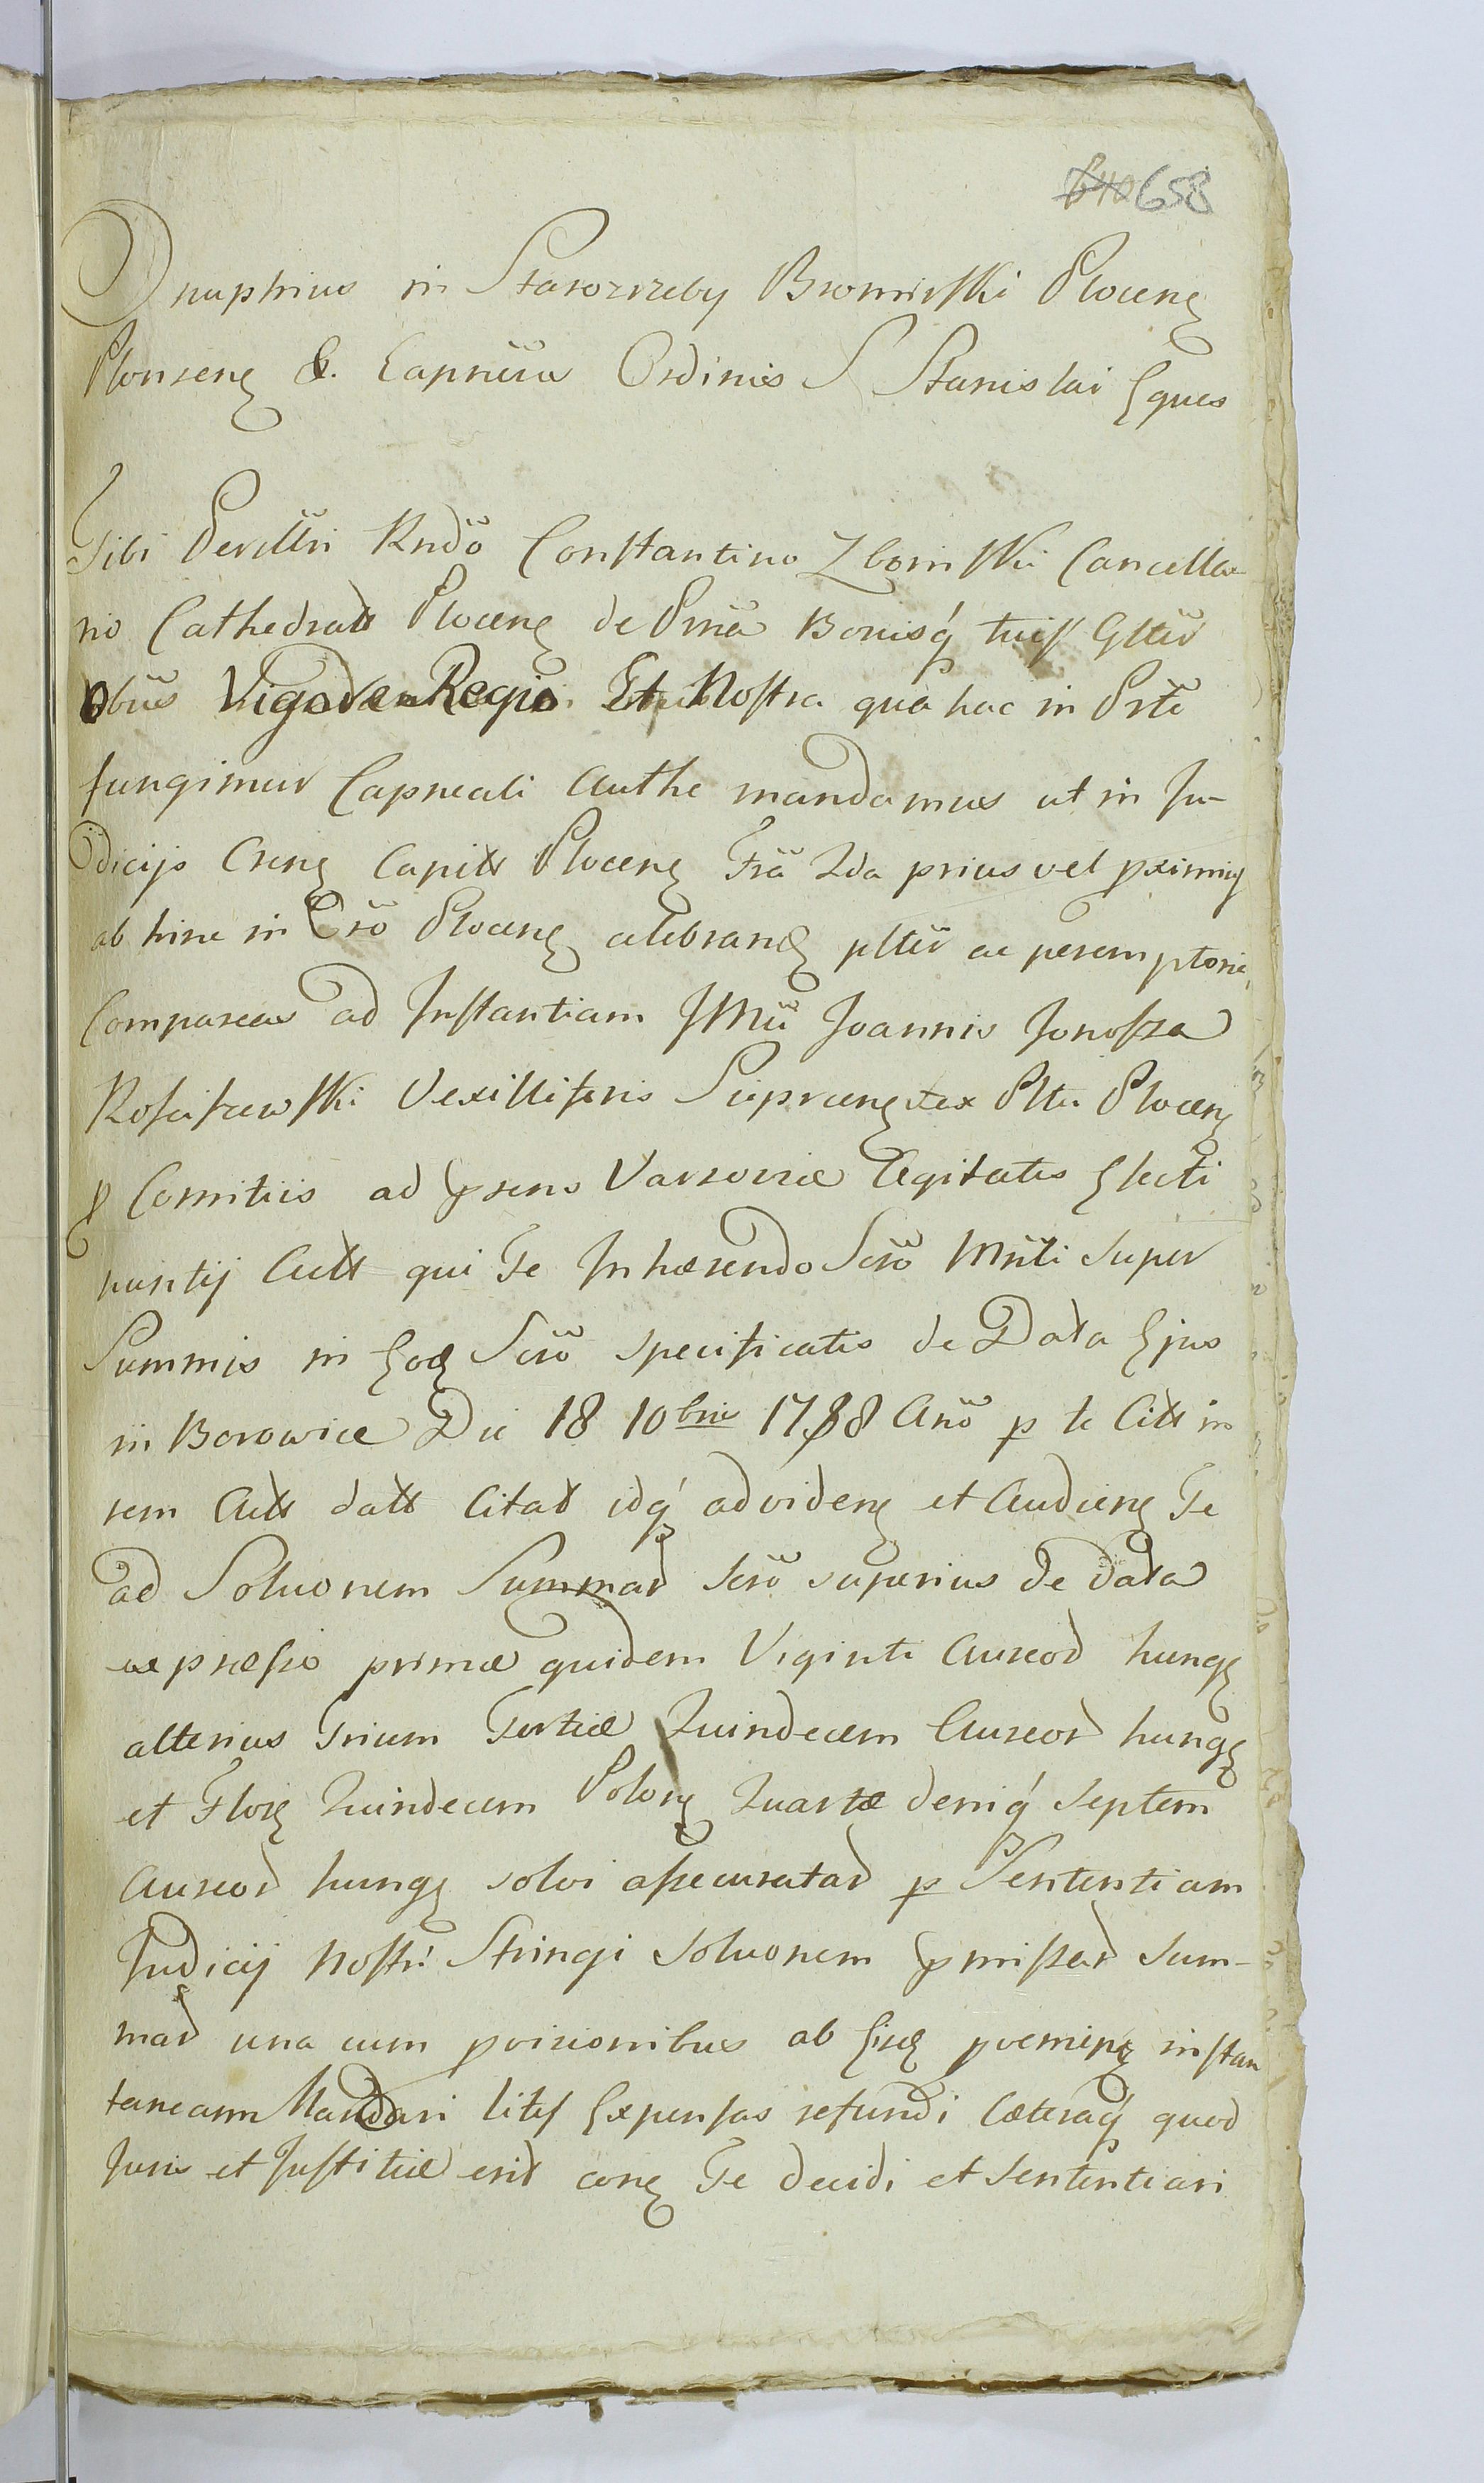 640 658
Onuphrius in Starozrzeby Bromirski Plocen
Plonsen &. Capneus Ordinis S Stanislai Eques
Tibi Perilltri Rndo Constantino Zboinski Cancella-
rio Cathedralt Plocen de Prna Bonisq tuis Gltter
obus Vigore Regia Et Nostra qua hac in Prte
fungimur Capneali Authe mandamus ut in Ju-
dicijs Cren Capitt Plocen Fra 2da prius vel pximig
ab hinc in Cro Plocen celebran pltter ac peremptorie
Compareas ad Instantiam JMci Joannis Junosza
Rosciszewski Vexilliferis Sieprcen tex Pttu Plocen
P Comitiis ad psens Varsoviæ Agitatis Electi
nuntij Actt qui Te Inhærendo Scro Mnti super
Summis in Eod Scro specificatis de Data Ejus
in Borowice Die 18 10bris 1788 Ano p te Citt in
rem Actt datt Citat idq ad viden et Audien Te
ad Soluonem Summar Scro superius de data
expresso primæ quidem Viginti Aureor hung
alterius Trium Tertiæ Quindecem Aureor hung
et Flor Quindecem Polon Quartæ deniq septem
Aureor hung solvi assecuratar p Sententiam
Judicij Nostri Stringi Soluonem pmissar Sum-
mar una cum pvisionibus ab Eisd pvenien instan
taneam Mandari litis Expensas refundi Cæteraq quod
Juris et Justitiæ erit con Te decidi et Sententiari